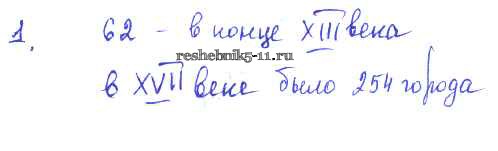 1. 62 - в конце XIII века
reshebnik5-11.ru
в XVII веке было 254 города